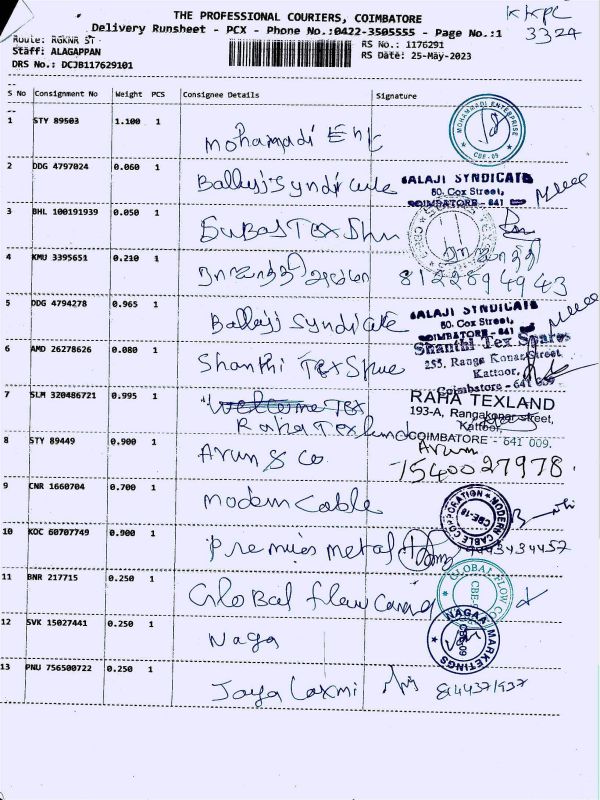 THE PROFESSIONAL COURIERS, COIMBATORE
KKPC
3324
Delivery Runsheet - PCX - Phone No.:0422-3505555 - Page No.:1
Route: RGKNR ST
RS No.: 1176291
Staff: ALAGAPPAN
RS Date: 25-May-2023
DRS No.: DCJB117629101
S No Consignment No Weight PCS Consignee Details Signature
1 STY 89503 1.100 1
Mohamadi Ent
MOHAMMADI ENTERPRISE
CBE-09
2 DDG 4797024 0.060 1
Ballaji Syndicate
BALAJI SYNDICATE
80, Cox Street,
COIMBATORE - 641
3 BHL 100191939 0.050 1
Subas Tex
4 KMU 3395651 0.210 1
8122894943
5 DDG 4794278 0.965 1
Ballaji Syndicate
BALAJI SYNDICATE
80, Cox Street,
COIMBATORE - 641
6 AMD 26278626 0.080 1
Shanthi Tex
Shanthi Tex Spares
255, Ranga Konar Street,
Kattoor,
Coimbatore - 641 009
7 SLM 320486721 0.995 1
Welcome Tex
Raha Texland
RAHA TEXLAND
193-A, Rangakonar street,
Kattoor,
COIMBATORE - 641 009.
8 STY 89449 0.900 1
Arun & Co
Arun
7540027978.
9 CNR 1660704 0.700 1
Modern Cable
MODERN CABLE CORPORATION
CBE-18
10 KOC 60707749 0.900 1
Premier metal
11 BNR 217715 0.250 1
Global flow
GLOBAL FLOW CO
CBE
12 SVK 15027441 0.250 1
Naga
NAGAA MARKETINGS
CBE-09
13 PNU 756500722 0.250 1
Jaya Laxmi